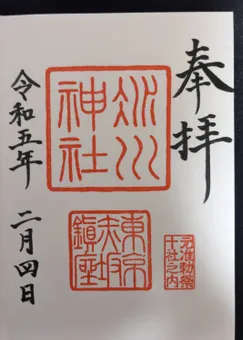 奉拝
氷川神社
東京赤坂鎮座
元准勅祭十社之内
令和五年 二月四日